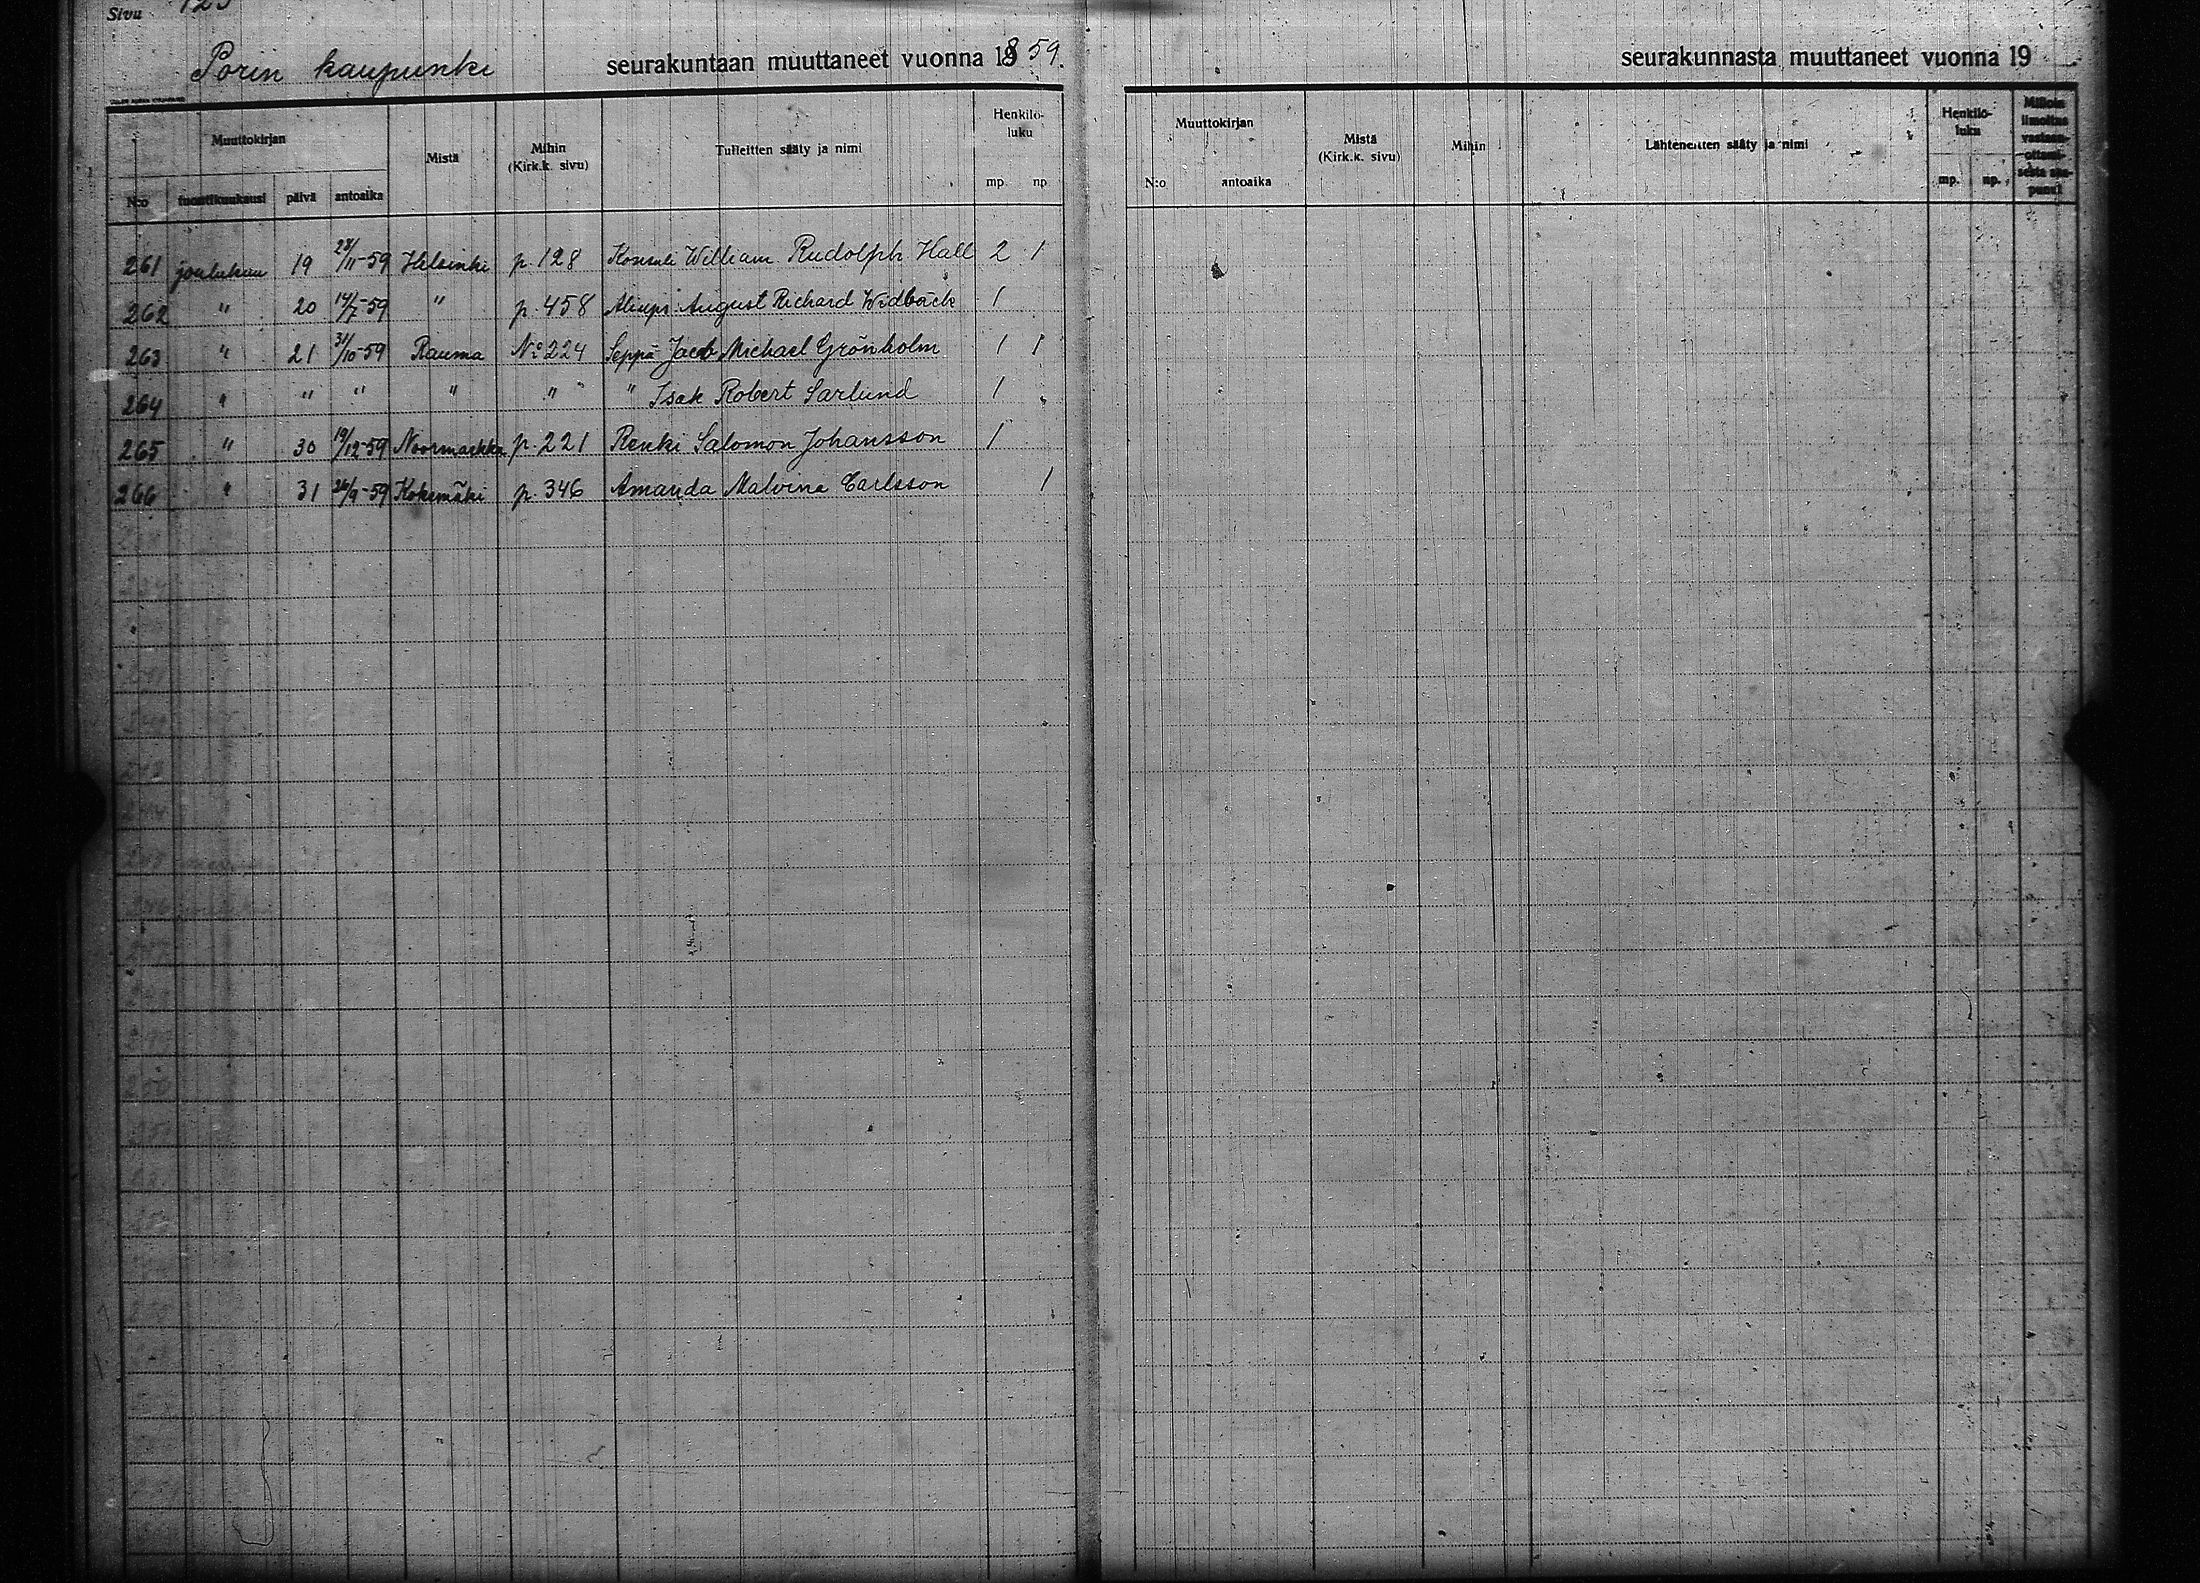 Sivu 123
Porin kaupunki seurakuntaan muuttaneet vuonna 1859.
Muuttokirjan Mistä Mihin (Kirk.k. sivu) Tulleitten sääty ja nimi Henkilö-luku
N:o tuontikuukausi päivä antoaika mp. np
261 joulukuu 19 28/11-59 Helsinki p. 128 Konsuli William Rudolph Hall 2 1
262 " 20 14/7-59 " p. 458 August Richard Widbäck 1
263 " 21 31/10-59 Rauma No 224 Seppä Jacob Michael Grönholm 1 1
264 " " " " " " Isak Robert Sarlund 1
265 " 30 19/12-59 Noormarkku p. 221 Renki Salomon Johansson 1
266 " 31 26/9-59 Kokemäki p. 346 Amanda Malvina Carlsson 1
seurakunnasta muuttaneet vuonna 19
Muuttokirjan Mistä (Kirk.k. sivu) Mihin Lähteneitten sääty ja nimi Henkilö-luku Milloin ilmoitus vastaan-ottami-sesta saa-punut
N:o antoaika mp. np.